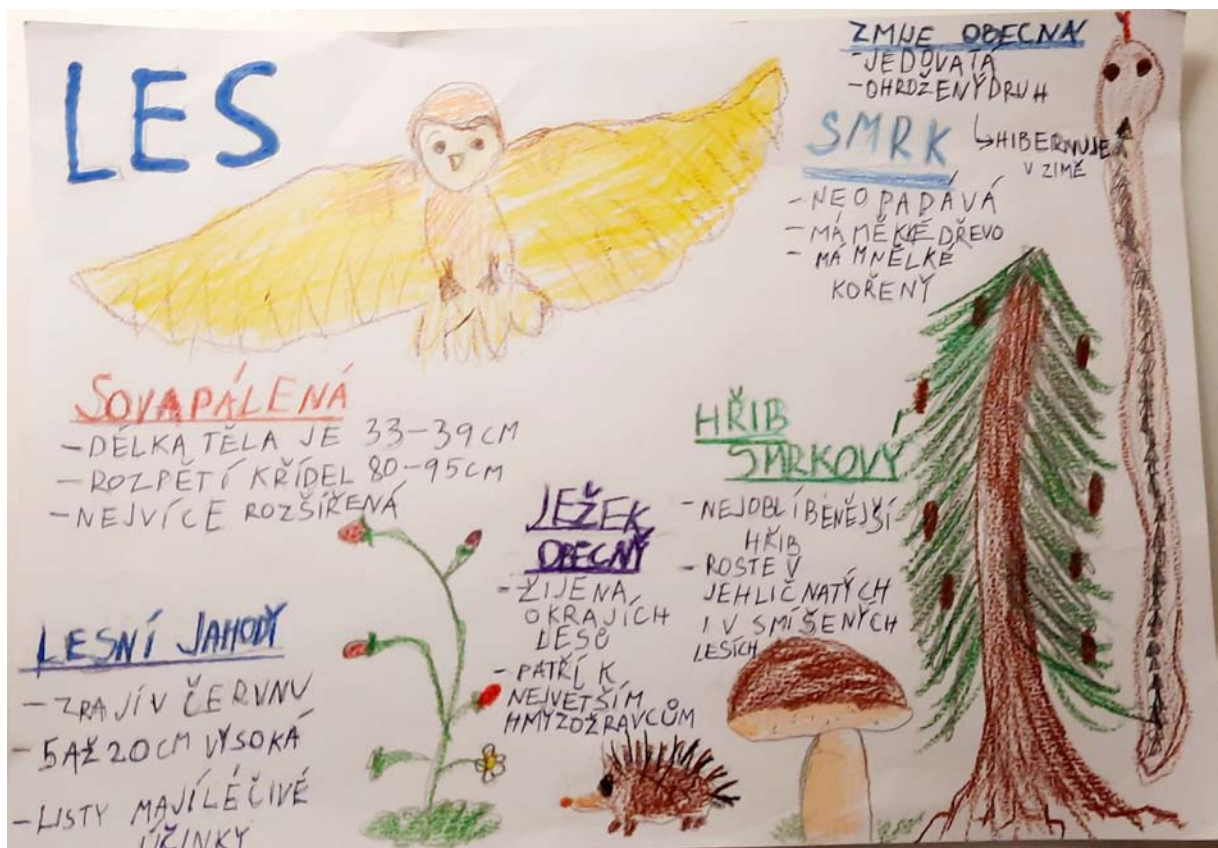 LES
ZMIJE OBECNÁ
-JEDOVATÁ
-OHROŽENÝ DRUH
↳HIBERNUJE
V ZIMĚ
SMRK
-NEOPADÁVÁ
-MÁ MĚKKÉ DŘEVO
-MÁ MNĚLKÉ
KOŘENY
SOVA PÁLENÁ
-DÉLKA TĚLA JE 33-39 CM
-ROZPĚTÍ KŘÍDEL 80-95 CM
-NEJVÍCE ROZŠÍŘENÁ
HŘIB
SMRKOVÝ
-NEJOBLÍBĚNĚJŠÍ
HŘIB
-ROSTE V
JEHLIČNATÝCH
I V SMÍŠENÝCH
LESÍCH
JEŽEK
OBECNÝ
-ŽIJE NA
OKRAJÍCH
LESŮ
-PATŘÍ K
NEJVĚTŠÍM
HMYZOŽRAVCŮM
LESNÍ JAHODY
-ZRAJÍ V ČERVNU
-5 AŽ 20 CM VYSOKÁ
-LISTY MAJÍ LÉČIVÉ
ÚČINKY